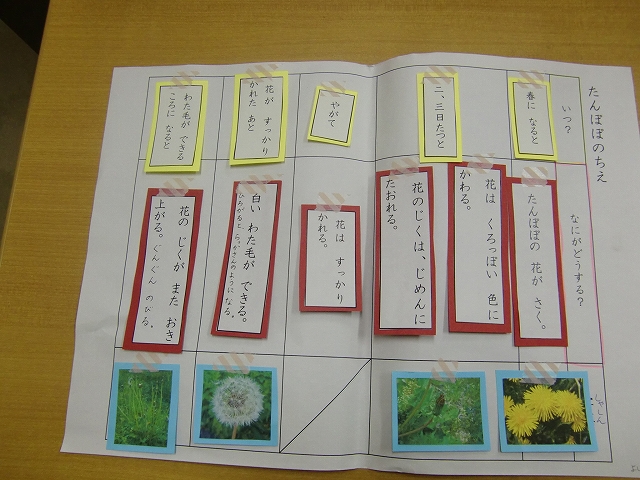 たんぽぽのちえ
いつ?
なにがどうする?
しゃしん
春に なると
たんぽぽの 花が さく。
二、三日たつと
花は くろっぽい 色に
かわる。
花のじくは、じめんに
たおれる。
やがて
花は すっかり
かれる。
花が すっかり
かれた あと
白い わた毛が できる。
ひろがると らっかさんのように なる。
わた毛が できる
ころに なると
花の じくが また おき
上がる。ぐんぐん のびる。